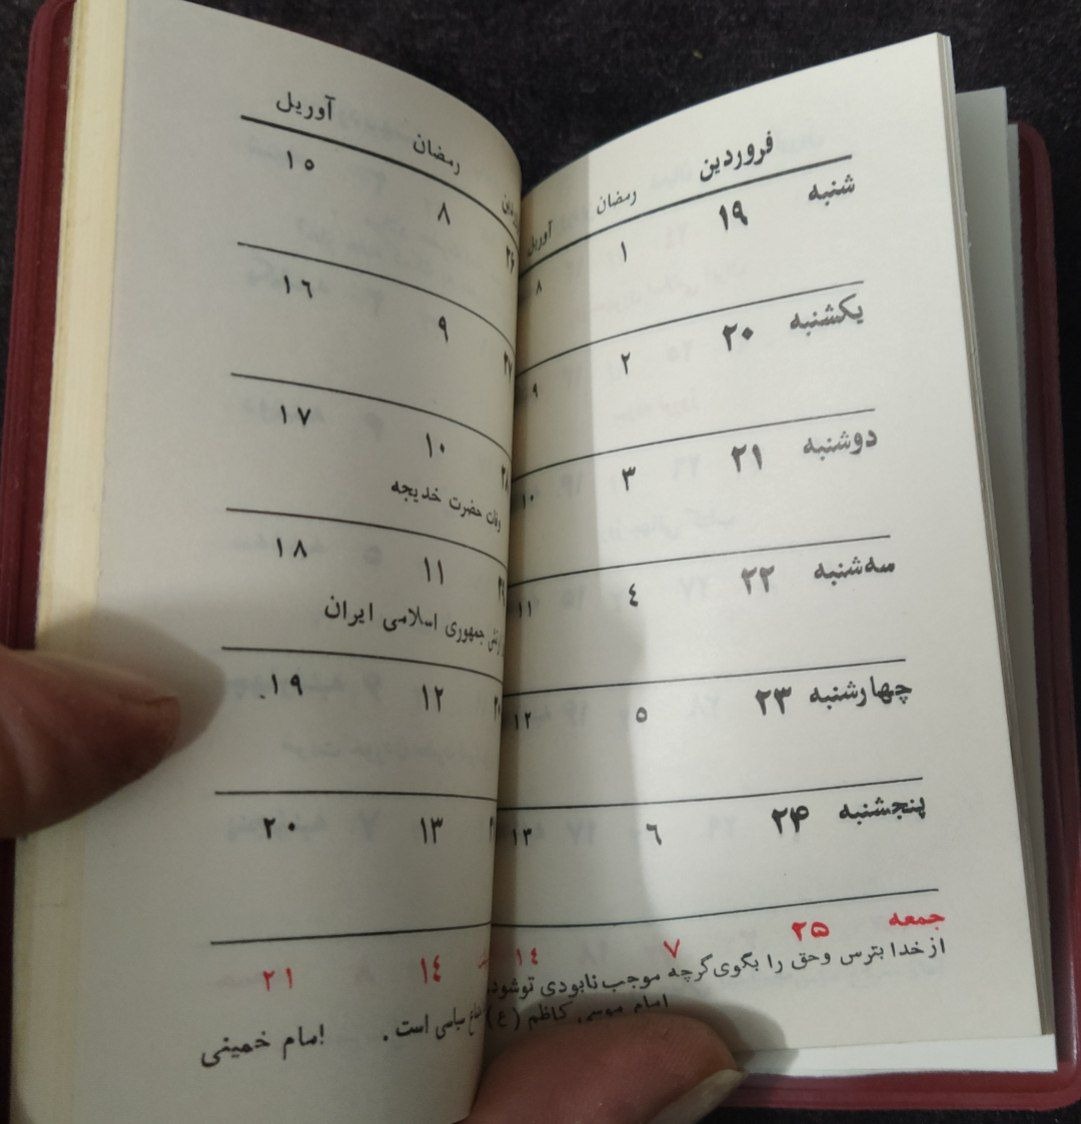 فروردین رمضان آوریل
شنبه ۱۹ ۱ ۸
یکشنبه ۲۰ ۲ ۹
دوشنبه ۲۱ ۳ ۱۰
سه‌شنبه ۲۲ ٤ ۱۱
چهارشنبه ۲۳ ۵ ۱۲
پنجشنبه ۲۴ ٦ ۱۳
جمعه ۲۵ ۷ ۱٤
از خدا بترس وحق را بگوی گرچه موجب نابودی تو شود.
امام موسی کاظم (ع)
رمضان آوریل
۲۶ ۸ ۱۵
۲۷ ۹ ۱٦
۲۸ ۱۰ ۱۷
وفات حضرت خدیجه
۲۹ ۱۱ ۱۸
جمهوری اسلامی ایران
۱۲ ۱۹
۱۳ ۲۰
۱٤ ۲۱
سیاسی است . امام خمینی